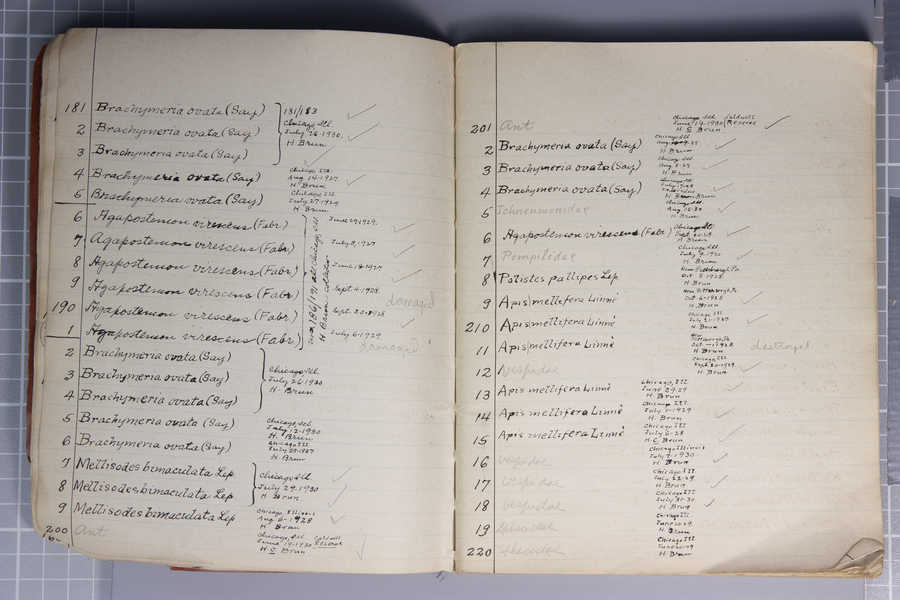 181 Brachymeria ovata (Say) 181/183
Chicago Ill.
2 Brachymeria ovata (Say) July 26-1930
H Brun
3 Brachymeria ovata (Say)
4 Brachymeria ovata (Say) Chicago Ill
Aug 14-1927
H Brun
5 Brachymeria ovata (Say) Chicago Ill
July 27-1929
H Brun
6 Agapostemon virescens (Fabr) June 29-1929
7 Agapostemon virescens (Fabr) July 8-1927
8 Agapostemon virescens (Fabr)
9 Agapostemon virescens (Fabr) Sept 4-1928
damaged
190 Agapostemon virescens (Fabr) Sept 20-1928
1 Agapostemon virescens (Fabr) July 6-1929
damaged
2 Brachymeria ovata (Say)
Chicago Ill.
3 Brachymeria ovata (Say) July 26-1930
H. Brun
4 Brachymeria ovata (Say)
5 Brachymeria ovata (Say) Chicago Ill
July 12-1930
H. Brun
6 Brachymeria ovata (Say) Chicago Ill
H Brun
7 Mellisodes bimaculata Lep
Chicago Ill
8 Mellisodes bimaculata Lep July 29-1930
H Brun
9 Mellisodes bimaculata Lep Chicago, Illinois
Aug 6-1928
H Brun
200 Ant Chicago, Ill
June 14-1930
H. C Brun
201 Ant Chicago Ill Caldwell
June 14-1930 Reserve
H C Brun
2 Brachymeria ovata (Say) Chicago Ill
H Brun
3 Brachymeria ovata (Say) Chicago Ill
H Brun
4 Brachymeria ovata (Say)
5 Ichneumonidae Chicago Ill
H Brun
6 Agapostemon virescens (Fabr) Chicago Ill
H Brun
7 Pompilidae Chicago Ill
H Brun
8 Polistes pallipes Lep New Pittsburgh Pa
H Brun
9 Apis mellifera Linné New Pittsburgh Pa
Oct-6-1928
H Brun
210 Apis mellifera Linné Chicago Ill
H Brun
11 Apis mellifera Linné
H Brun
destroyed
12 Vespidae Chicago Ill
H Brun
13 Apis mellifera Linné Chicago, Ill
June 29-29
H Brun
14 Apis mellifera Linné Chicago Ill
July 1-1929
H Brun
15 Apis mellifera Linné Chicago Ill
July 6-28
H C Brun
16 Vespidae Chicago Illinois
July 9-1930
H Brun
17 Vespidae Chicago Ill
H Brun
18 Vespidae Chicago Ill
July 31-30
H Brun
19 Chicago Ill
June 20-29
H Brun
220 Chicago Ill
June 20-29
H Brun